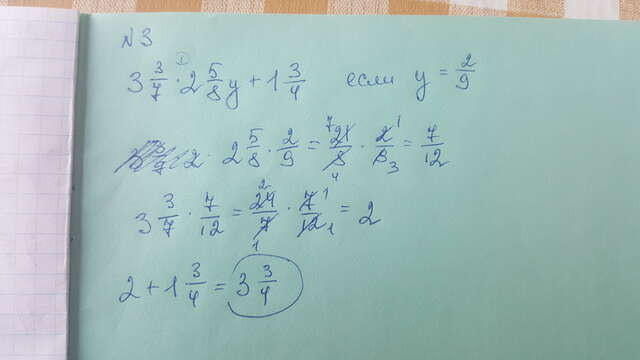 N3
3 3/7 · 2 5/8 y + 1 3/4 если y = 2/9
2 5/8 · 2/9 = 21/8 · 2/9 = 7/12
3 3/7 · 7/12 = 24/7 · 7/12 = 2
2 + 1 3/4 = 3 3/4